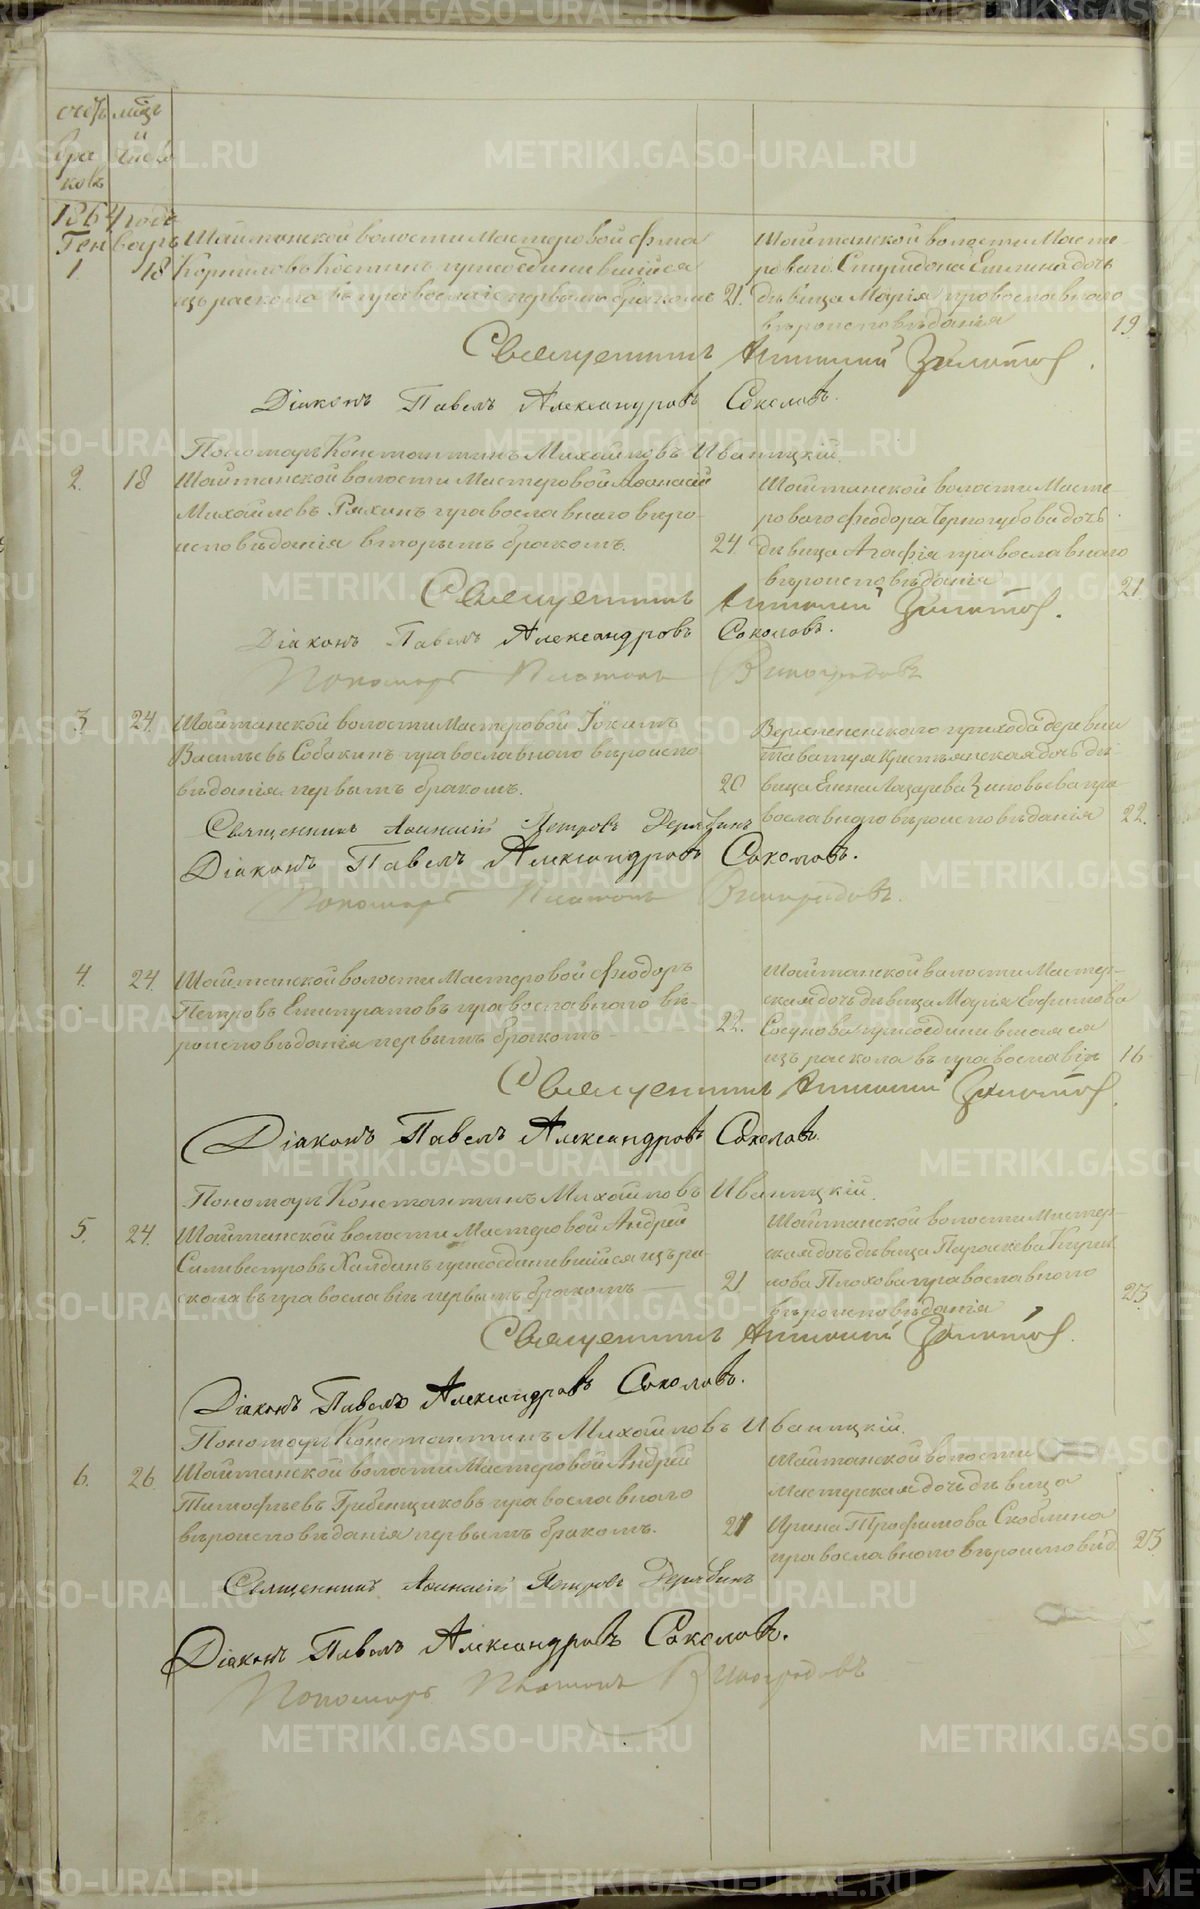 счетъ мѣсяцъ
и
бра число
ковъ
1864 года
Генваря
1 18 Шайтанской волости Мастеровой Фома
Корниловъ Костинъ присоединившійся
изъ раскола въ православіе первымъ бракомъ 21.
Шайтанской волости Масте-
роваго Спиридона Епина дочь
дѣвица Марія православнаго
вѣроисповѣданія 19.
Священникъ Антоній Золотовъ.
Діаконъ Павелъ Александровъ Соколовъ.
Пономарь Константинъ Михайловъ Иваницкій
2. 18 Шайтанской волости Мастеровой Афанасій
Михайловъ Ряхинъ православнаго вѣро-
исповѣданія вторымъ бракомъ. 24.
Шайтанской волости Масте-
роваго Феодора Черногубова дочь
дѣвица Агафія православнаго
вѣроисповѣданія 21.
Священникъ Антоній Золотовъ.
Діаконъ Павелъ Александровъ Соколовъ.
Пономарь Платонъ Виноградовъ
3. 24. Шайтанской волости Мастеровой Іакимъ
Васильевъ Собакинъ православнаго вѣроиспо-
вѣданія первымъ бракомъ. 20
прихода деревни
Таватуя крестьянская дочь дѣ-
вица Елена Лазарева Зиновьева пра-
вославнаго вѣроисповѣданія 22.
Священникъ Афанасій Петровъ Дерябинъ
Діаконъ Павелъ Александровъ Соколовъ.
Пономарь Платонъ Виноградовъ.
4. 24. Шайтанской волости Мастеровой Феодоръ
Петровъ православнаго вѣ-
роисповѣданія первымъ бракомъ 22.
Шайтанской волости Мастер-
ская дочь дѣвица Марія Ефимова
Сосунова присоединившаяся
изъ раскола въ православіе 16
Священникъ Антоній Золотовъ.
Діаконъ Павелъ Александровъ Соколовъ.
Пономарь Константинъ Михайловъ Иваницкій.
5. 24. Шайтанской волости Мастеровой Андрей
Силивестровъ Халдинъ присоединившійся изъ ра-
скола въ православіе первымъ бракомъ 21
Шайтанской волости Мастер-
ская дочь дѣвица Параскева Кирил-
лова Плохова православнаго
вѣроисповѣданія 23.
Священникъ Антоній Золотовъ.
Діаконъ Павелъ Александровъ Соколовъ.
Пономарь Константинъ Михайловъ Иваницкій.
6. 26. Шайтанской волости Мастеровой Андрей
Тимофѣевъ Гребенщиковъ православнаго
вѣроисповѣданія первымъ бракомъ. 21
Шайтанской волости
Мастерская дочь дѣвица
Ирина Трофимова Скоблина
православнаго вѣроисповѣд. 23.
Священникъ Афанасій Петровъ Дерябинъ
Діаконъ Павелъ Александровъ Соколовъ.
Пономарь Платонъ Виноградовъ